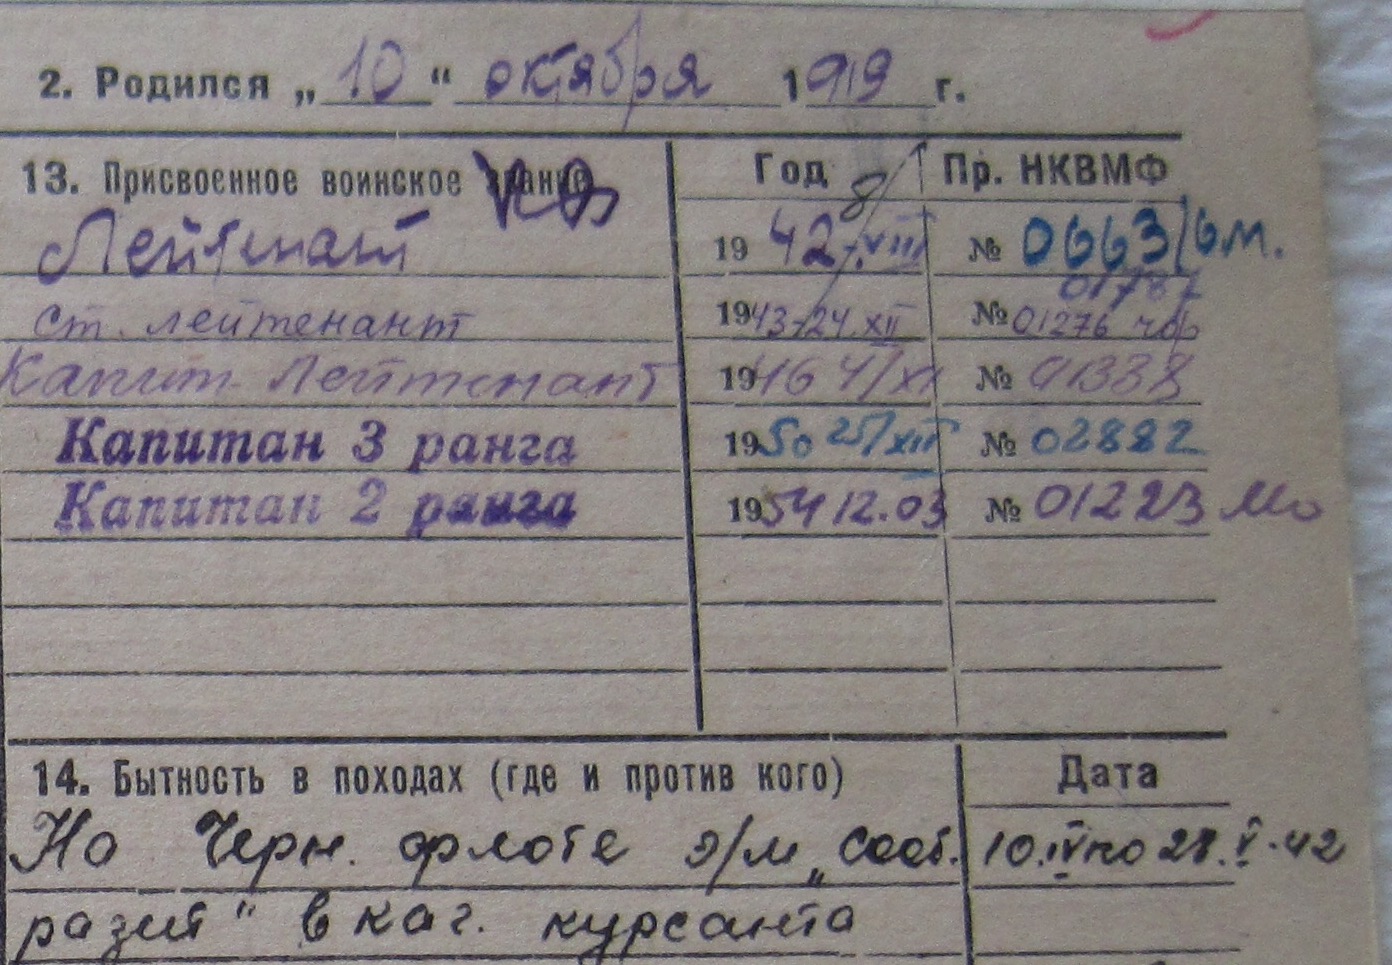 2. Родился „10“ октября 1919 г.
13. Присвоенное воинское звание Год Пр. НКВМФ
Лейтенант 1942.VIII № 0663/бм.
01787
ст. лейтенант 1943-24.XII № 01276 чф
Капит. Лейтенант 1946 4/XI № 01338
Капитан 3 ранга 1950 25/XII № 02882
Капитан 2 ранга 1954 12.03 № 01223 Мо
14. Бытность в походах (где и против кого) Дата
На Черн. флоте э/м „Сооб. 10.IV по 28.V.42
разит“ в кач. курсанта